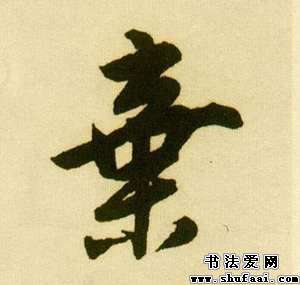 棄
书法爱网
www.shufaai.com